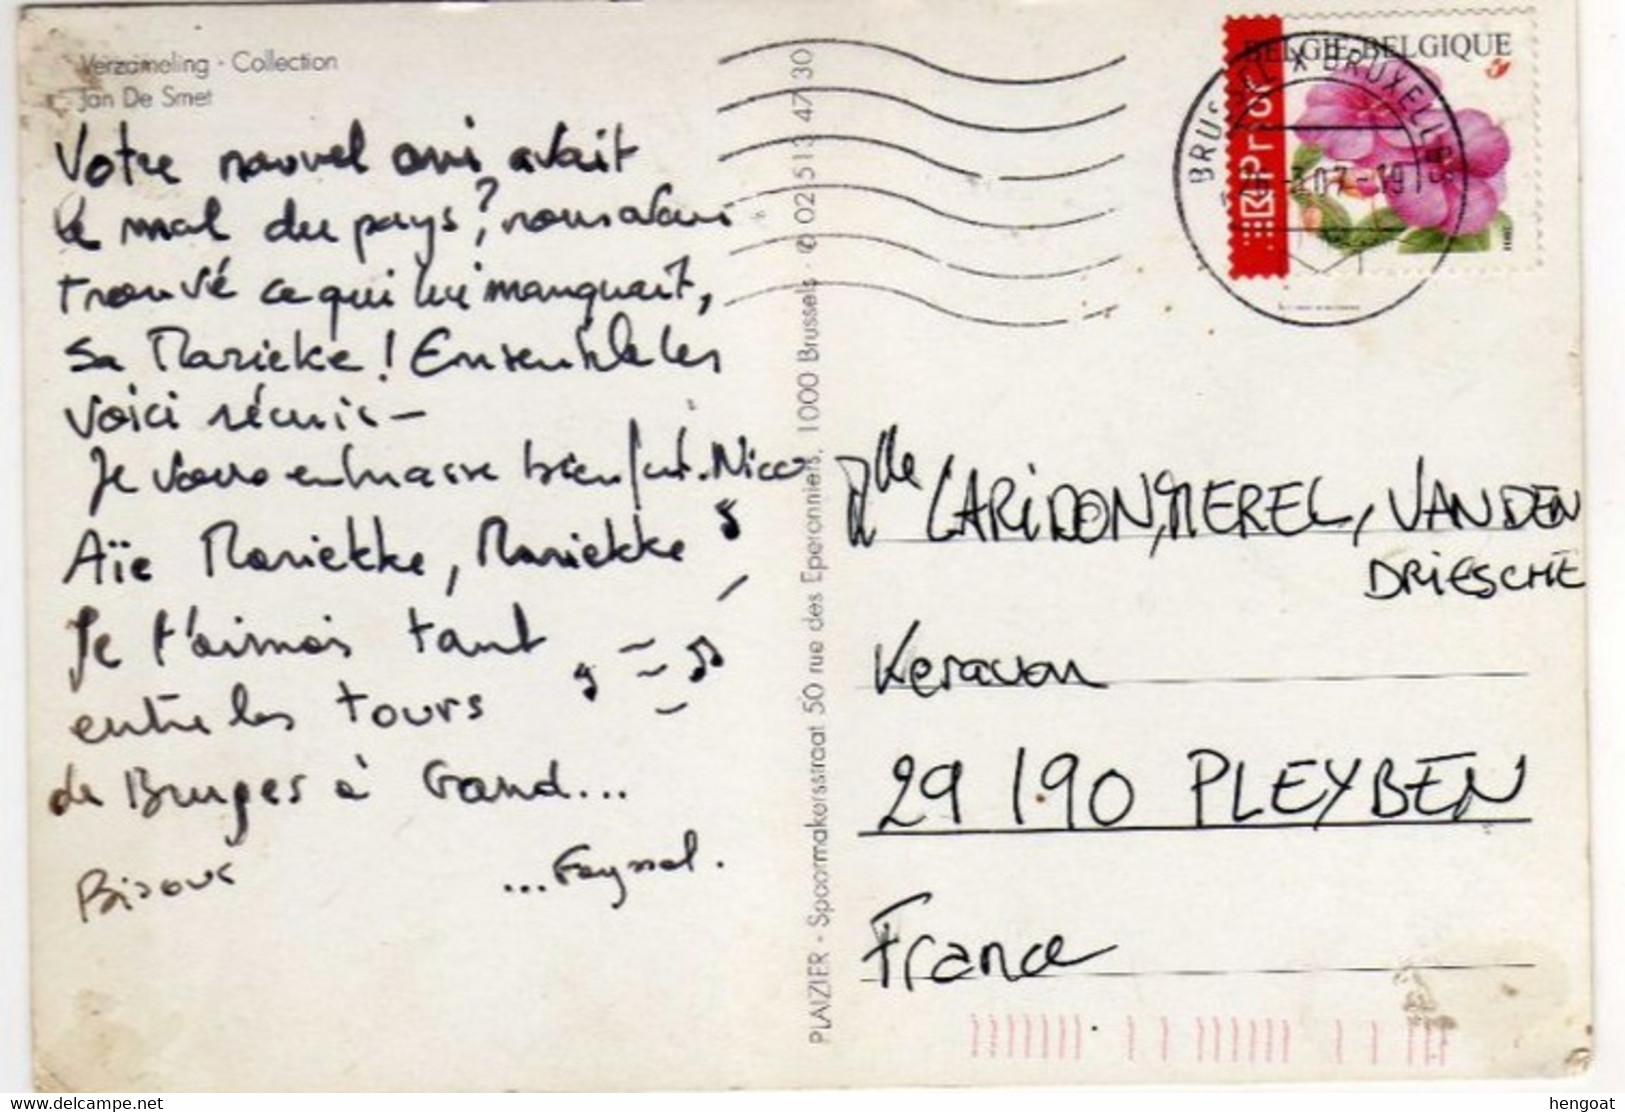 Verzameling · Collection
Jan De Smet
Votre nouvel ami avait
le mal du pays, nous avons
trouvé ce qui lui manquait,
sa Marieke ! Ensemble les
voici réunis -
Je vous embrasse bien fort. Nico
Aïe Mariekke, Mariekke
Je t'aimais tant
entre les tours
de Bruges à Gand...
Bisous ...Fayssal.
PLAIZIER - Spoormakersstraat 50 rue des Eperonniers, 1000 Brussels - ✆ 02 513 47 30
BELGIE-BELGIQUE
Prior
BRUSSEL X BRUXELLES
07-19
Mlle LARIDON, MEREL, VANDEN
DRIESCHE
Keravon
29190 PLEYBEN
France
www.delcampe.net
hengoat